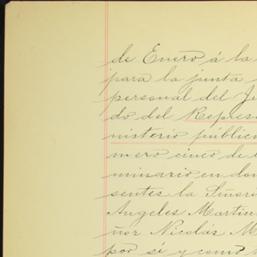 de Enero á la
para la junta
personal del Ju
do del Represe
nisterio público
mero cinco de
minario en don
sentes la Señora
Angeles Martin
ñor Nicolás M
por sí y como